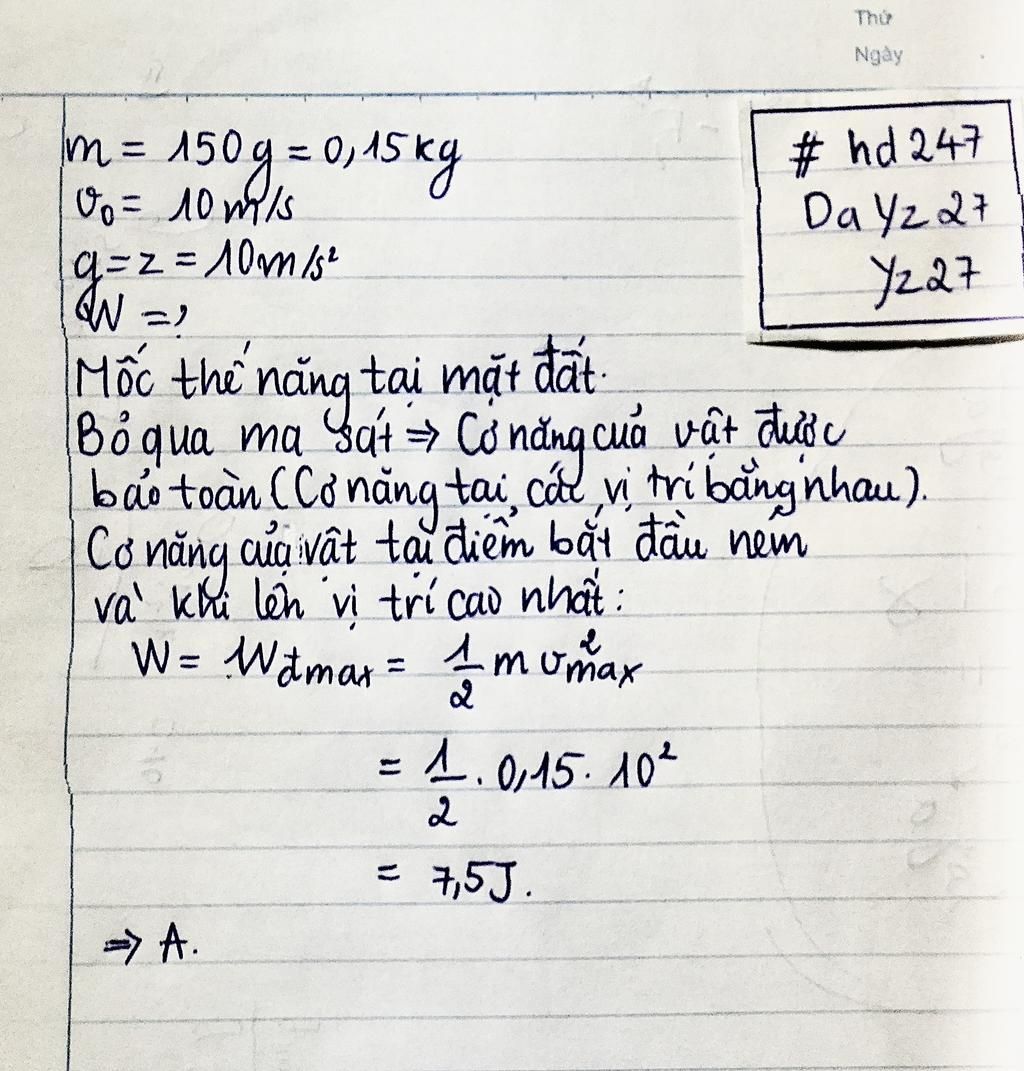 Thứ
Ngày
# hd247
DaYz27
Yz27
m = 150g = 0,15kg
v₀ = 10m/s
g = z = 10m/s²
W = ?
Mốc thế năng tại mặt đất.
Bỏ qua ma sát ⇒ Cơ năng của vật được
bảo toàn (Cơ năng tại các vị trí bằng nhau).
Cơ năng của vật tại điểm bắt đầu ném
và khi lên vị trí cao nhất:
W = Wđmax = 1/2 m v²max
= 1/2 . 0,15 . 10²
= 7,5J.
⇒ A.